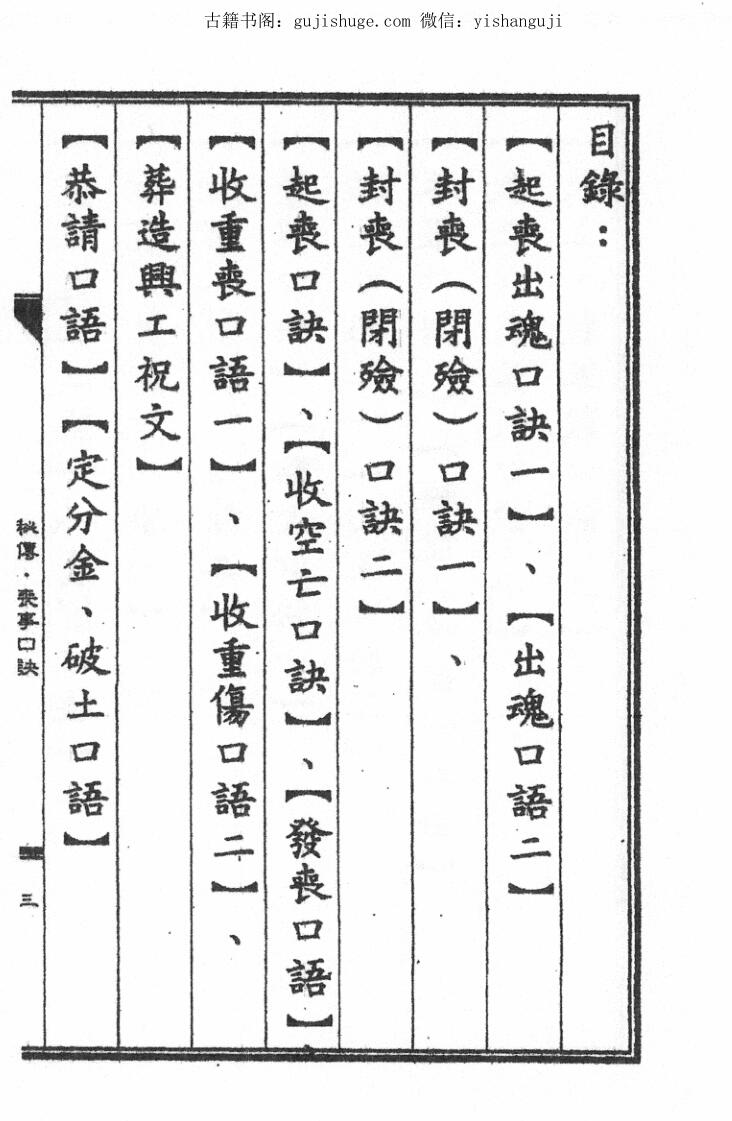 古籍书阁：gujishuge.com 微信：yishanguji
目錄：
【起喪出魂口訣一】、【出魂口語二】
【封喪（閉殮）口訣一】、
【封喪（閉殮）口訣二】
【起喪口訣】、【收空亡口訣】、【發喪口語】、
【收重喪口語一】、【收重傷口語二】、
【葬造興工祝文】
【恭請口語】【定分金、破土口語】
秘傳·喪事口訣
三